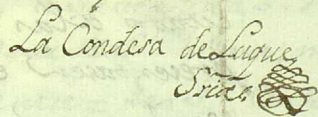 La Condesa de Luque